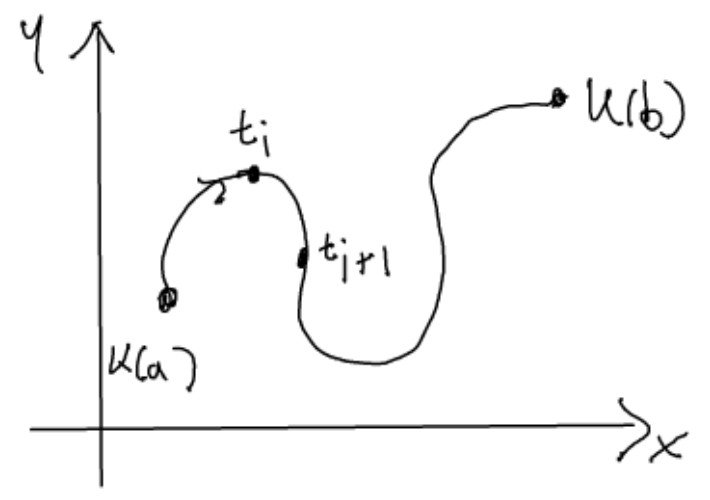 y
t_i
K(b)
t_{i+1}
K(a)
x